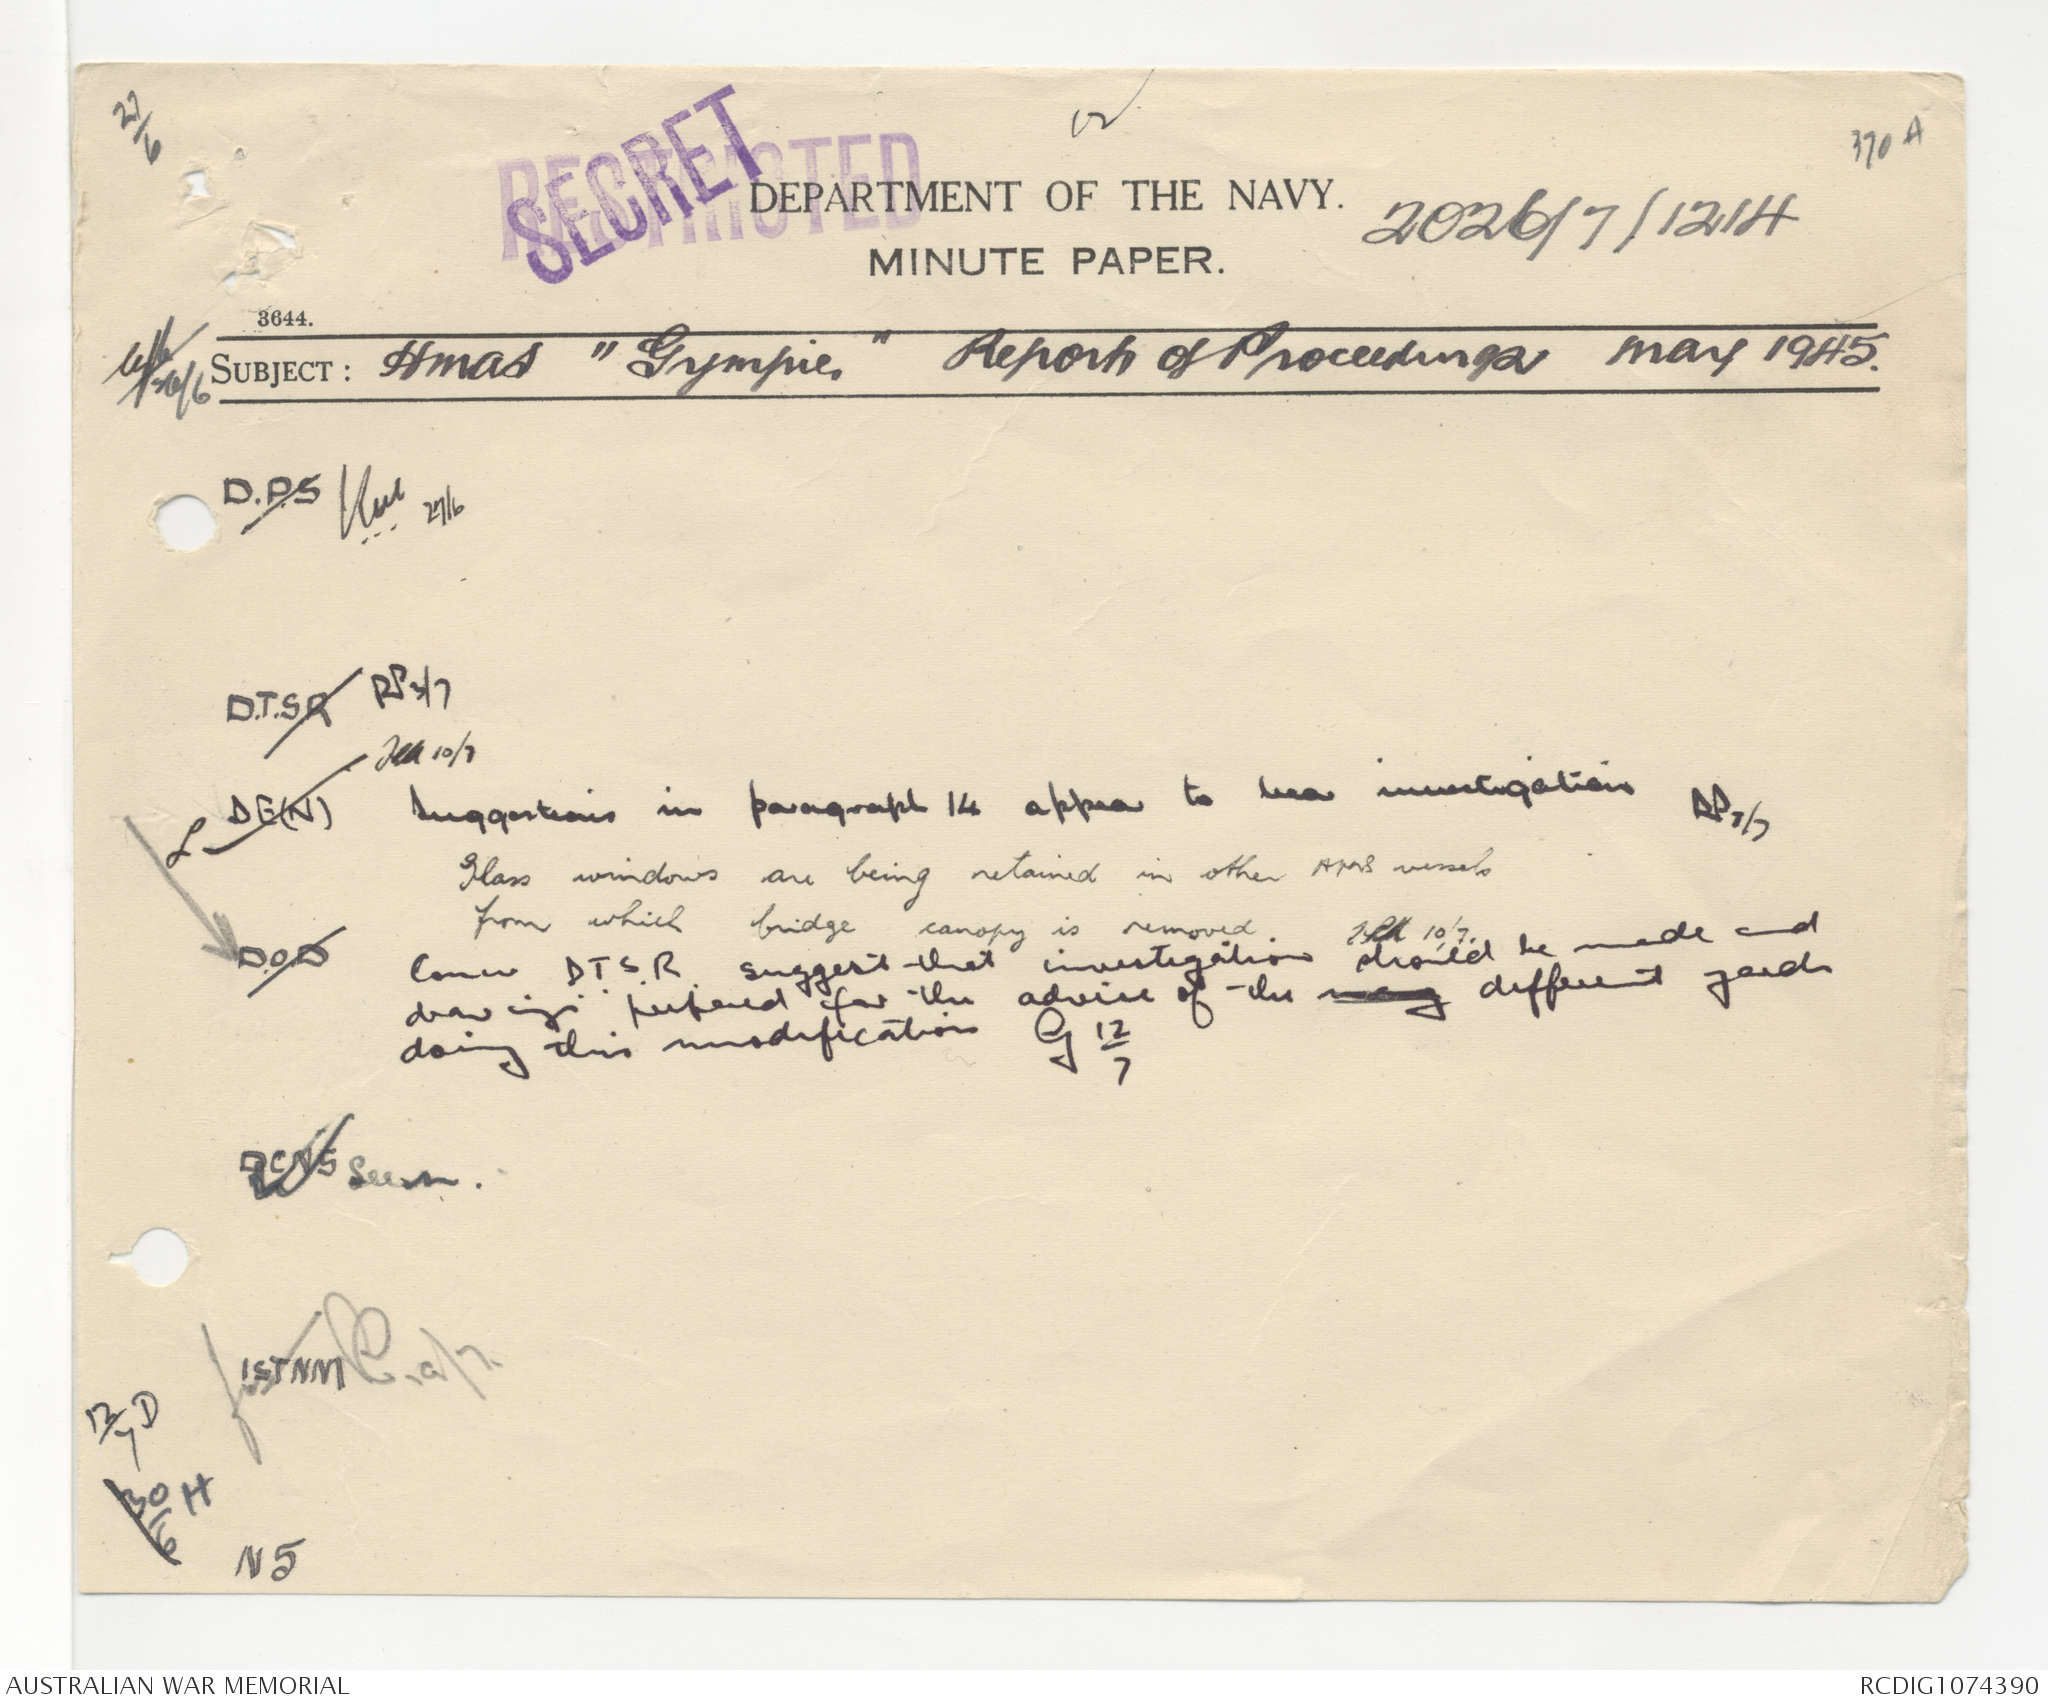 27/6
SECRET
RESTRICTED
370 A
DEPARTMENT OF THE NAVY.
2026/7/1214
MINUTE PAPER.
3644.
26/6
SUBJECT: HMAS "Gympie" Report of Proceedings May 1945.
D.P.S 27/6
D.T.S.R RP 3/7
10/7
D E(N) Suggestions in paragraph 14 appear to bear investigation RP 3/7
Glass windows are being retained in other AMS vessels
from which bridge canopy is removed. 10/7.
D.O.D Concur DTSR suggest that investigation should be made and
drawings prepared for the advice of the different yards
doing this modification G 12/7
DCNS Seen.
1STNM
12/7 D
30/6 H
N5
AUSTRALIAN WAR MEMORIAL
RCDIG1074390